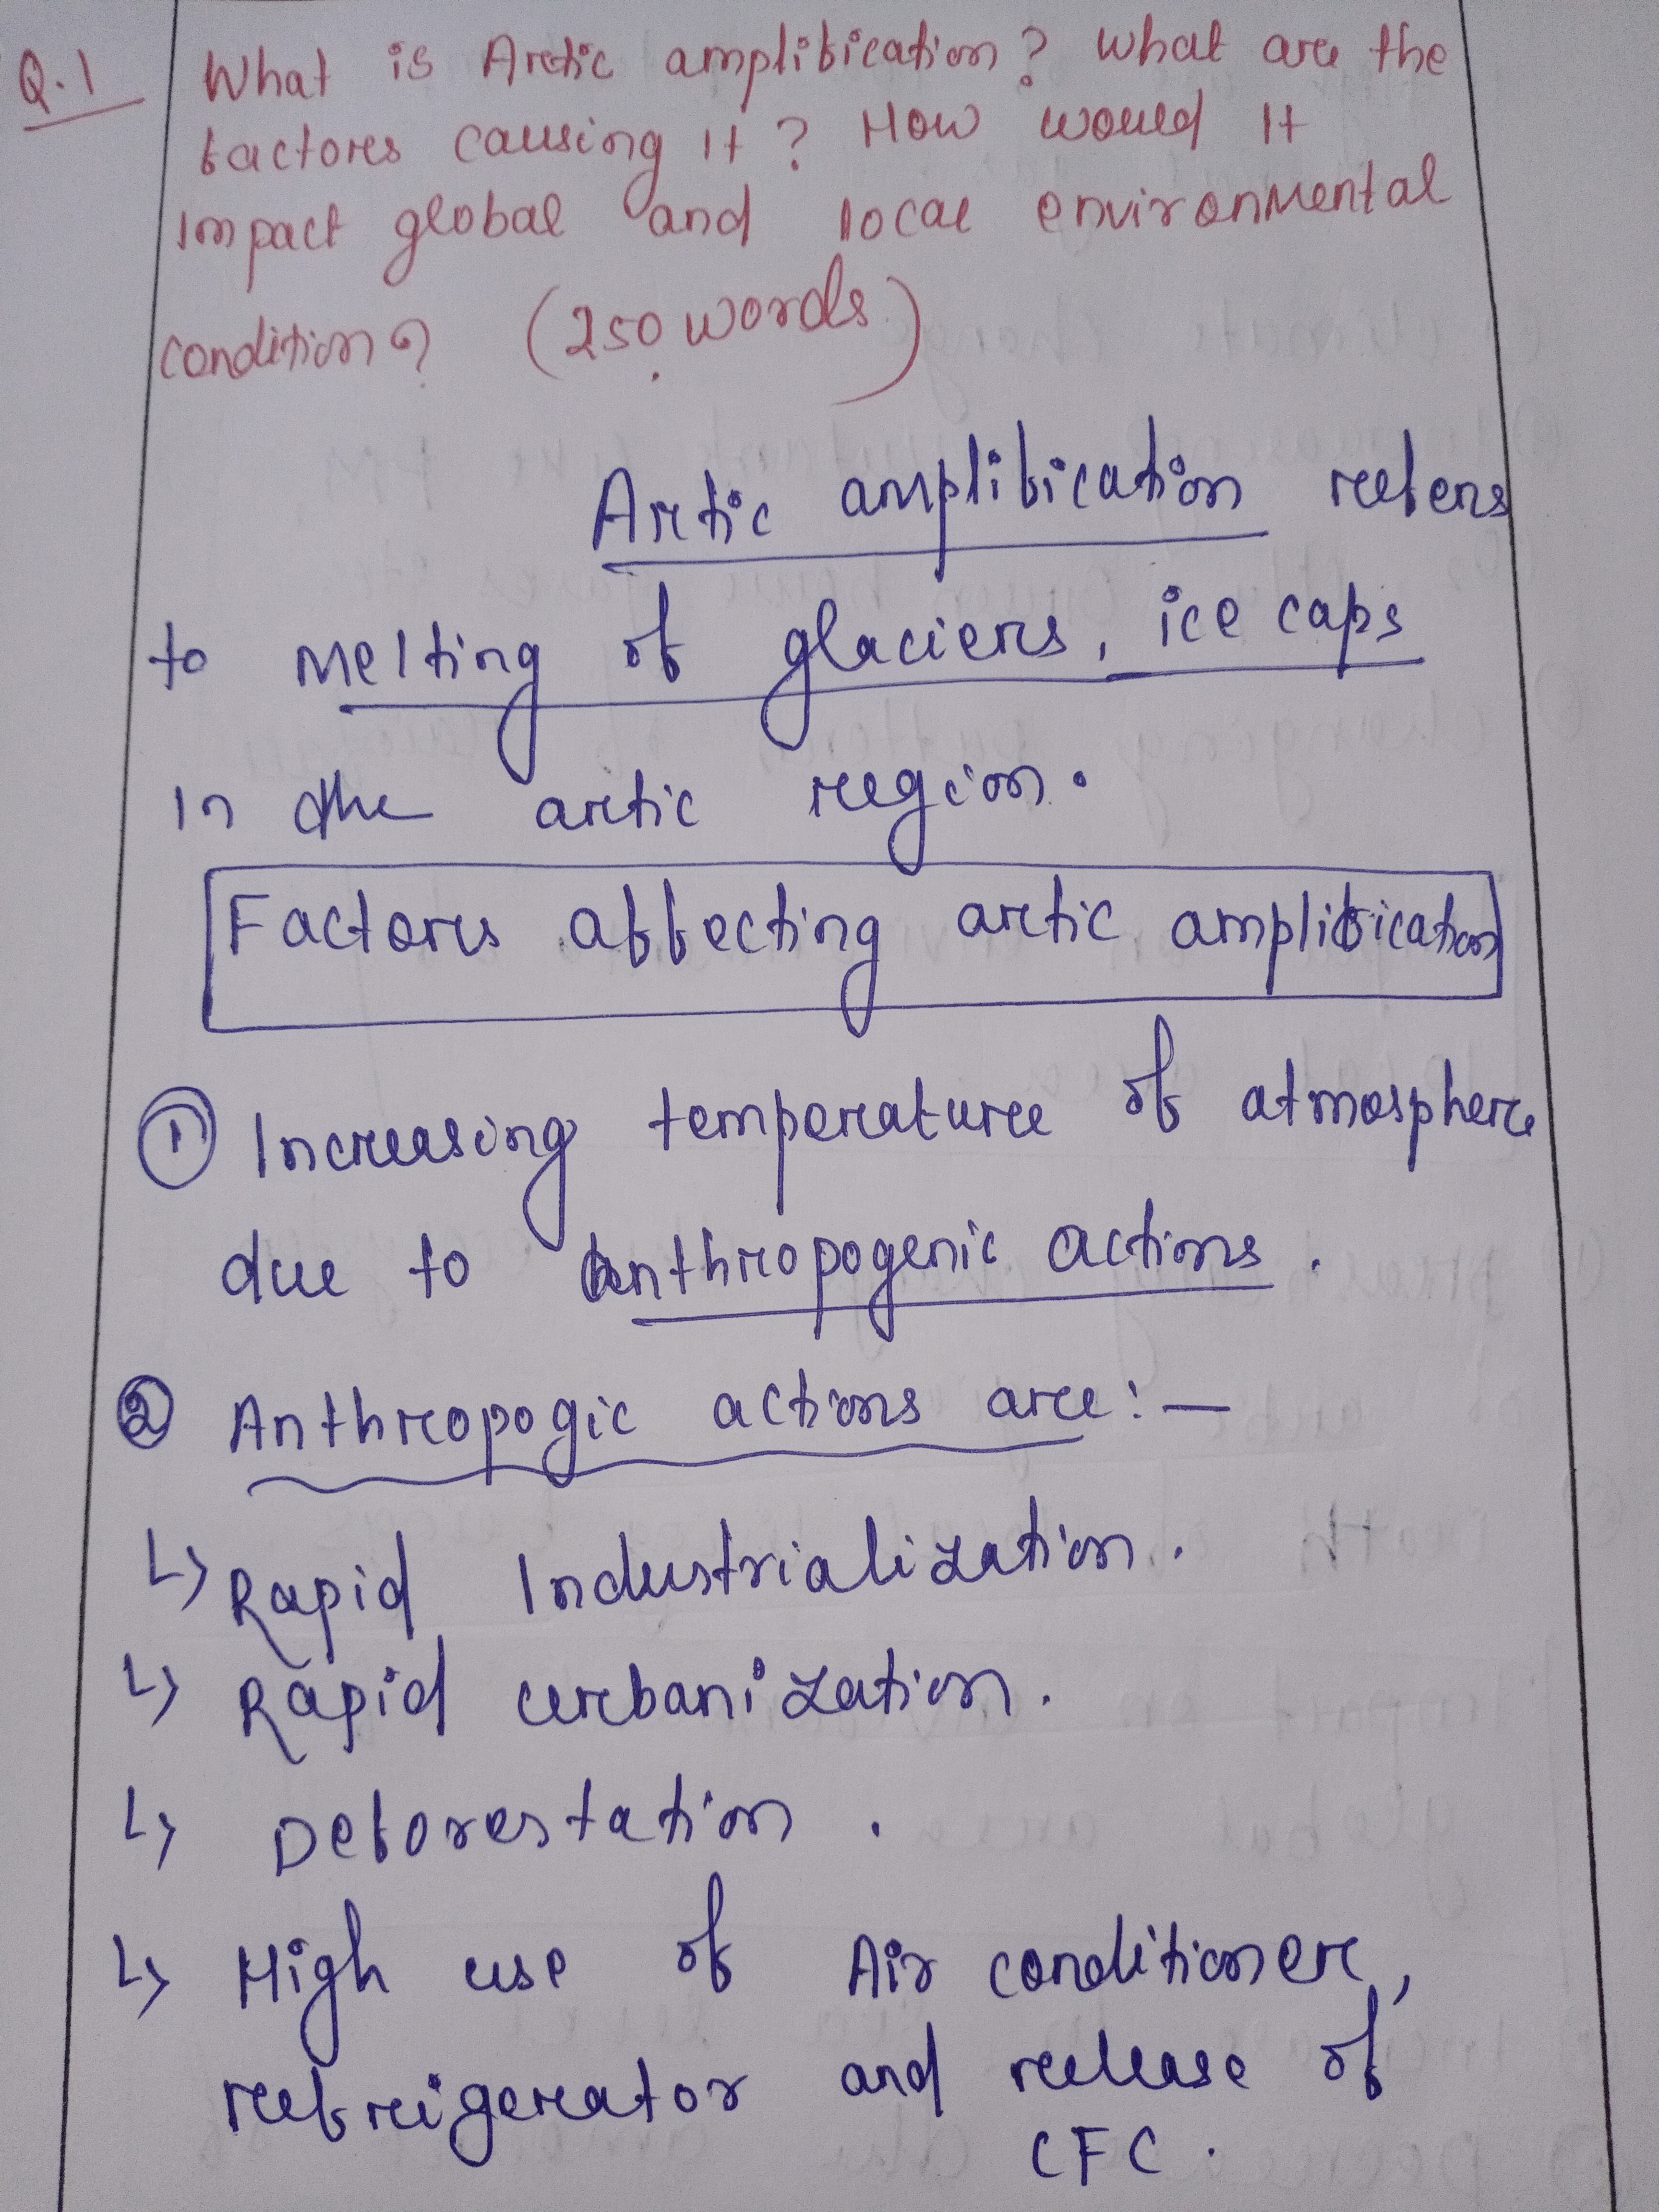 Q.1 What is Arctic amplification? What are the
factors causing it? How would it
impact global and local environmental
condition? (250 words)
Arctic amplification refers
to melting of glaciers, ice caps
in the arctic region.
Factors affecting arctic amplification
① Increasing temperature of atmosphere
due to anthropogenic actions.
② Anthropogic actions are:-
↳ Rapid Industrialization.
↳ Rapid urbanization.
↳ Deforestation.
↳ High use of Air conditioner,
refrigerator and release of
CFC.